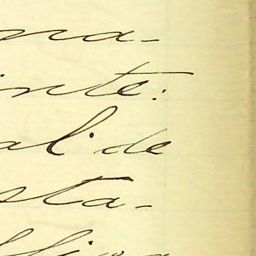 na-
inte:
al de
sta-